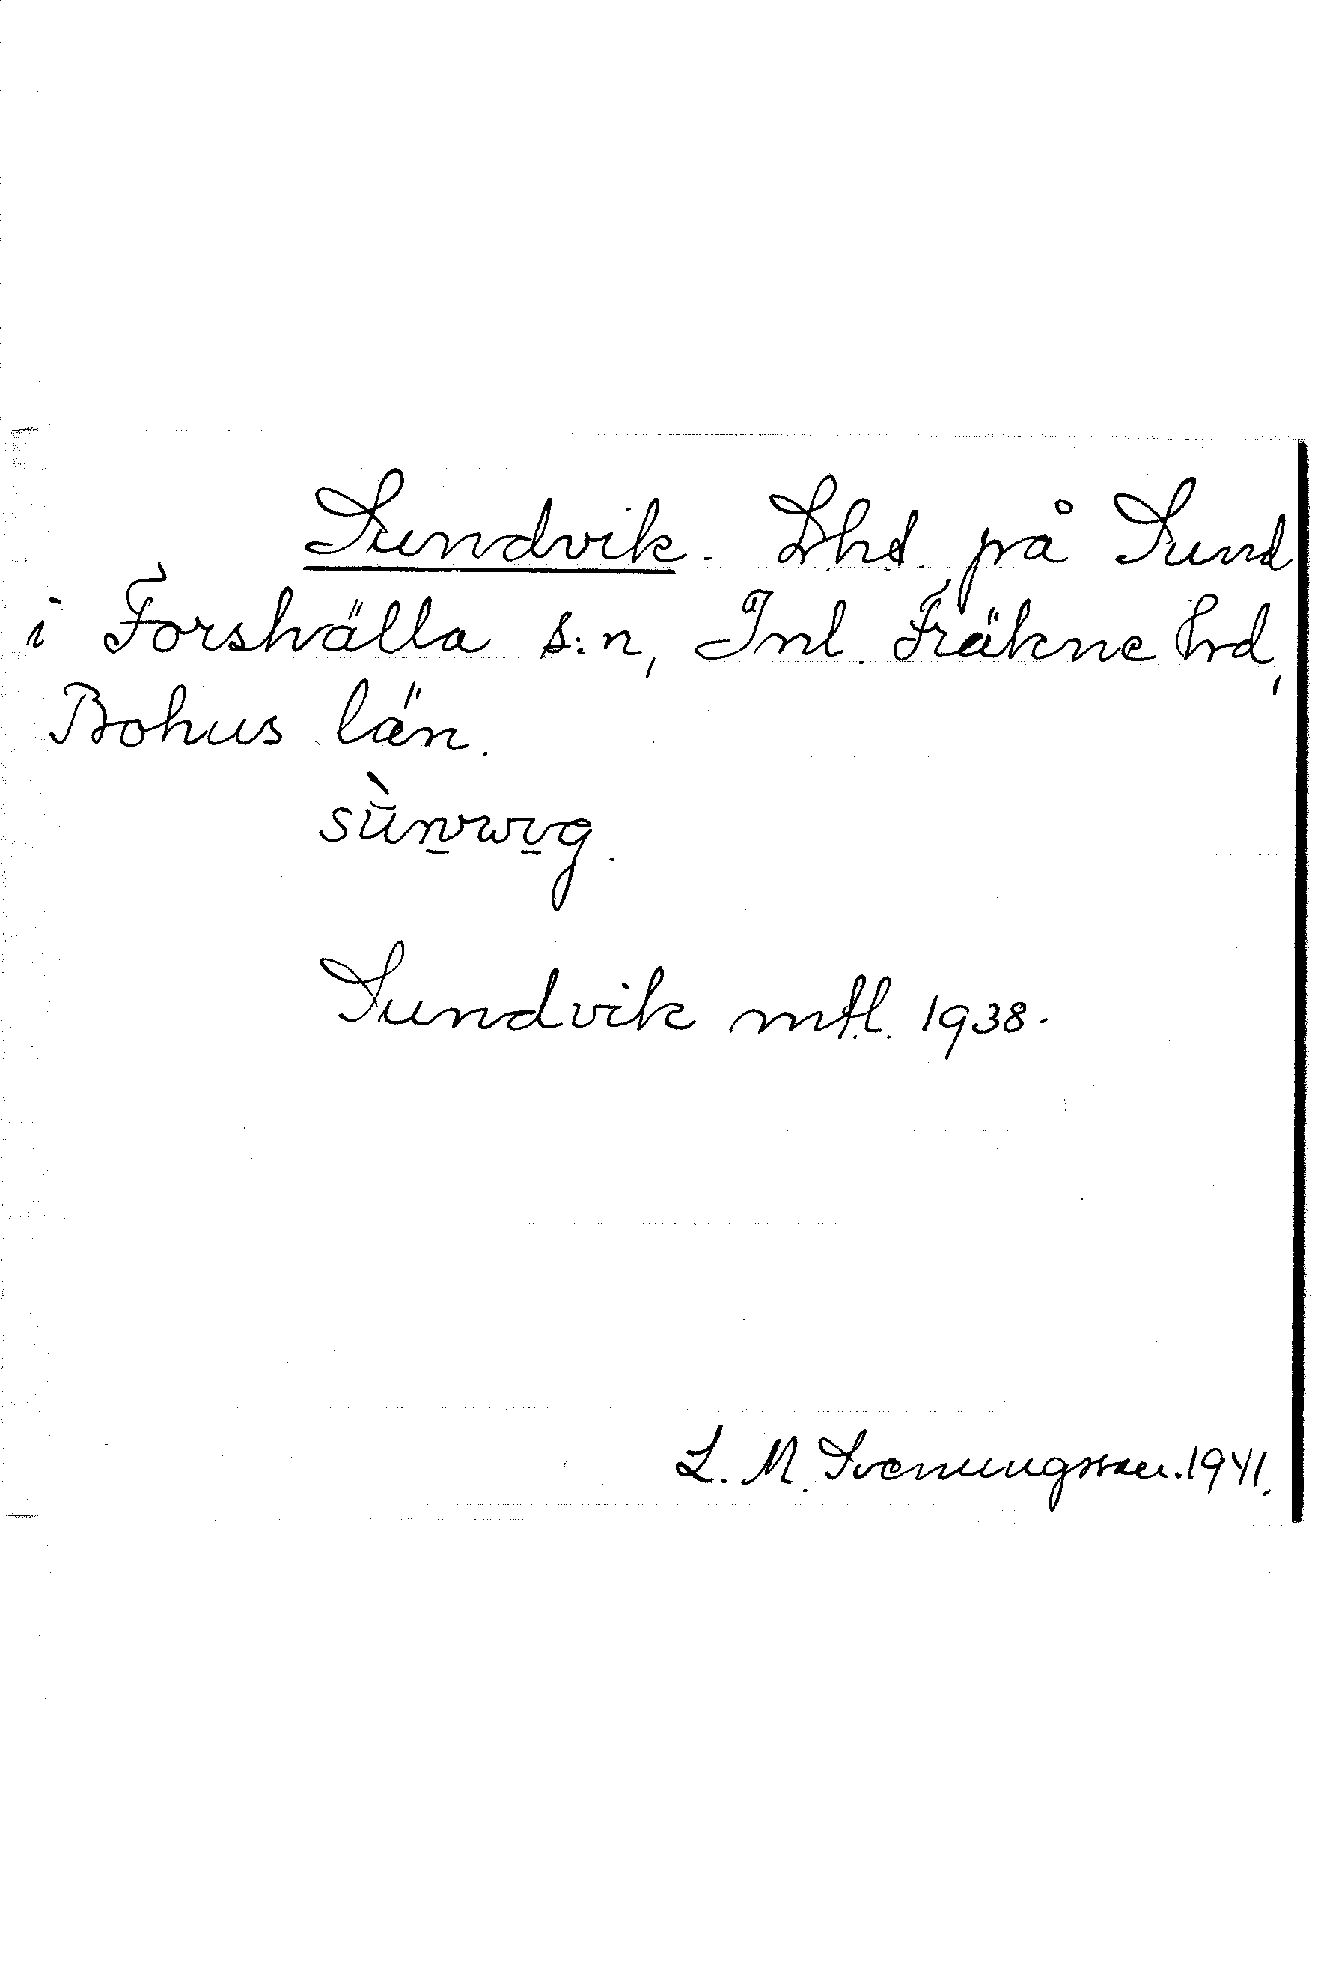 Sundvik. Lhd på Sund
i Forshälla s:n, Inl. Fräkne hd,
Bohus län.
Sundvik mtl. 1938.
L. M. Svenungsson. 1941.